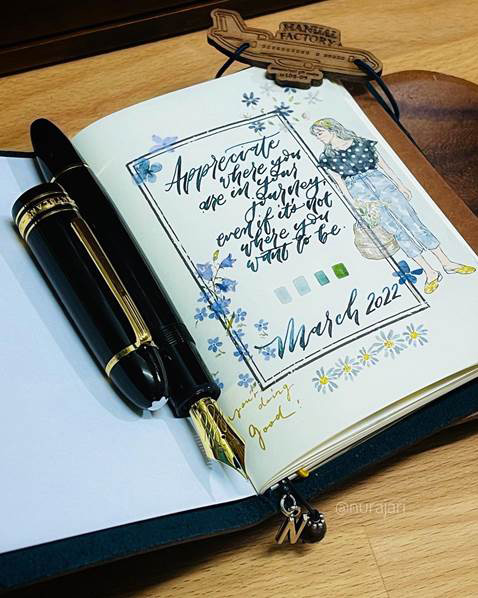 MANUAL
FACTORY
Appreciate
where you
are in your
journey,
even if it's not
where you
want to be.
March 2022
you're doing
good!
N
@nurajari